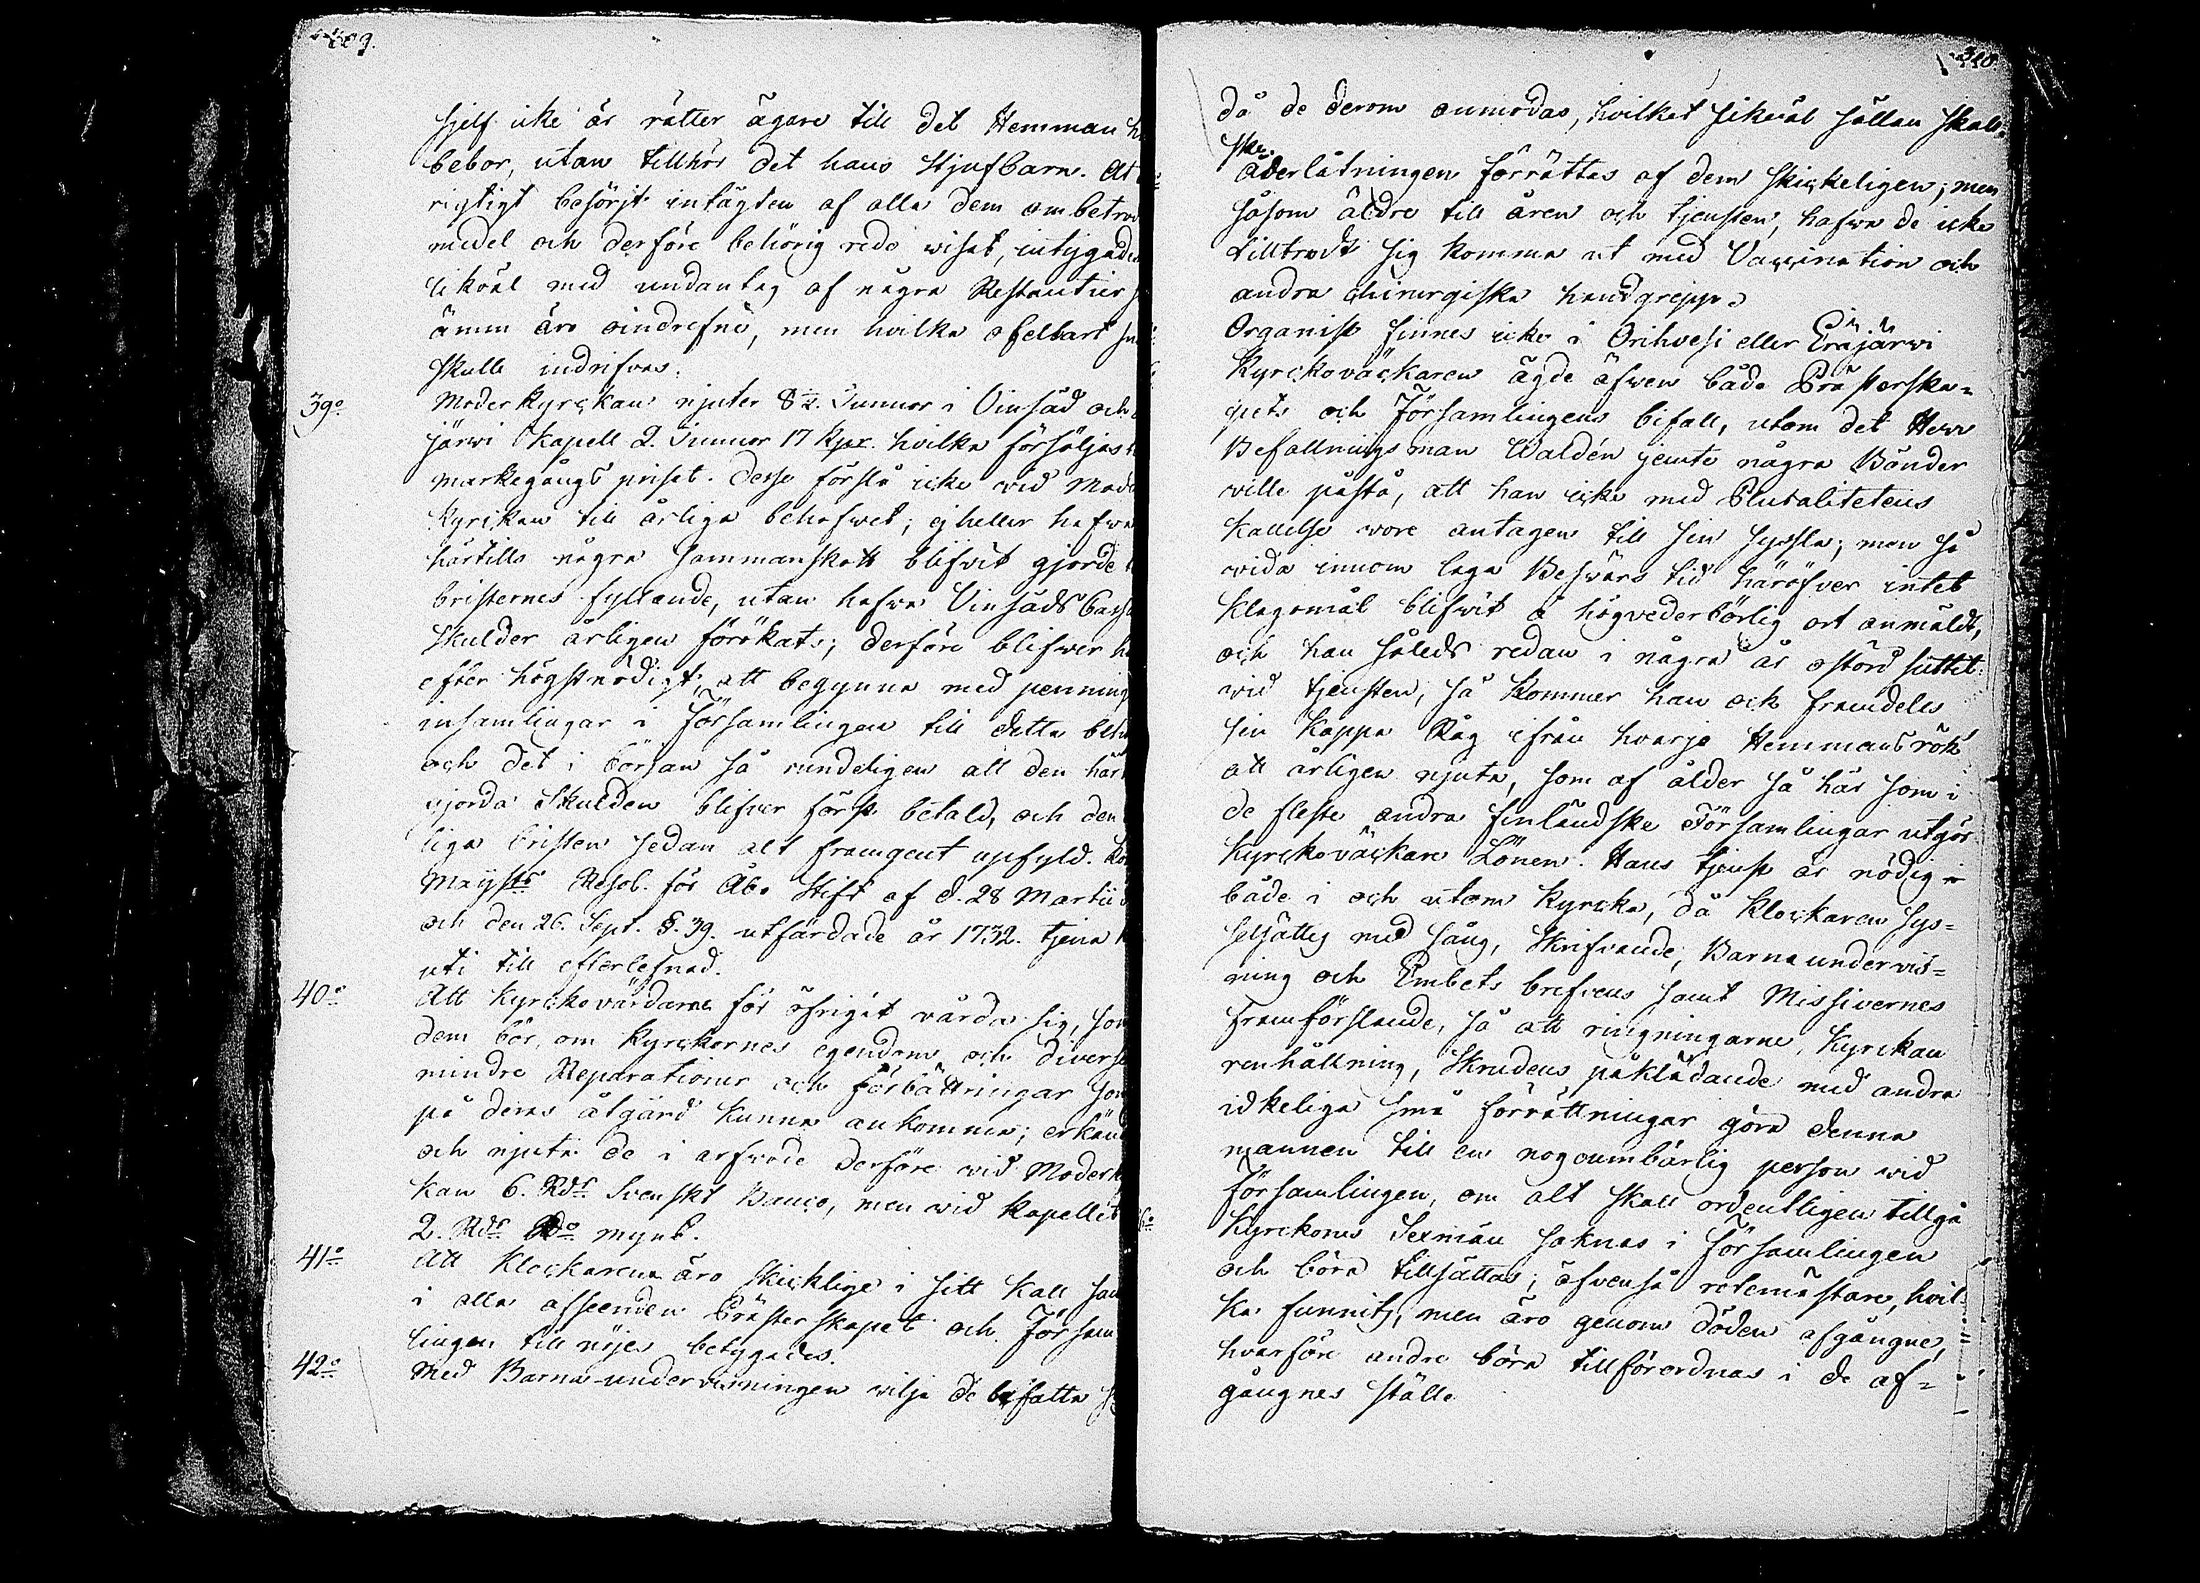 309.
sjelf icke är rätter ägare till det Hemman h
bebor, utan tillhör det hans Stjufbarn. At
rigtigt besörjt intägten af alla dem ambetrod
medel och derföre behörig redo wisat, intygades
likväl med undantag af några Restantier s
ämn äro oindrefne, men hvilka ofelbart sn
skulle indrifvas.
39o Moderkyrckan njuter 8½ Tunnor i Vinsäd och
järwi Kapell 2. Tunnor 17 Kpr. hvilka försäljas
markegångs priset. Desse förslå icke wid Mode
Kyrckan till årliga behofwet; ej heller hafwa
härtills några Sammanskott blifvit gjorde
bristernes fyllande, utan hafwa Vinsäds Cass
skulder årligen förökats; derföre blifwer hä
efter högstnödigt, att begynna med penning
insamlingar i Församlingen till detta beh
och det i början så rundeligen att den här
gjorda skulden blifver först betald, och den
liga bristen sedan alt framgent upfyld. Ko
Mayjsts Resol. för Åbo Stift af d. 28 Martii
och den 26. Sept. §. 39. utfärdade år 1732. tjena h
uti till efterlefnad.
40o Att Kyrckovärdarne för öfrigit vårda sig, som
dem bör, om Kyrckornes egendom och diverse
mindre Reparationer och förbättringar som
på deras åtgärd kunna ankomma; erkänd
och njuta de i arfvode derföre wid Moderk
kan 6. Rdr Svenskt Banco, men wid Kapellet
2. Rdr do mynt.
41o Att Klockarena äro skicklige i sitt kall sam
i alla afseenden Prästerskapet och Försam
lingen till nöjes betygades.
42o Med Barna-undervisningen vilja de befatta s
310.
då de derom anmodas, hvilket likväl sällan skall
ske.
Åderlåtningen förrättas af dem skickeligen; men
såsom äldre till åren och tjensten, hafwa de icke
tilltrodt sig komma ut med Vaccination och
andra chirurgiska handgrepp.
Organist finnes icke i Orihvesi eller Eräjärwi
Kyrckoväckaren ägde äfwen både Prästerska=
pets och Församlingens bifall, utom det Herr
Befallningsman Waldén jemte några Bönder
ville påstå, att han icke med Pluralitetens
kallelse wore antagen till sin syssla; men så
wida innom laga Beswärs tid häröfver intet
klagomål blifwit å högvederbörlig ort anmäldt,
och han således redan i några år ostörd suttit
wid tjensten, så kommer han och framdeles
sin Kappa Råg ifrån hvarje Hemmans rök
att årligen njuta, som af ålder så här som i
de fleste andra finländske Församlingar utgör
Kyrckoväckare Lönen. Hans tjenst är nödig
både i och utom Kyrcka, då Klockaren sys=
selsättes med sång, Skrifvande, Barna undervis=
ning och Embets brefvens samt Missivernes
framförslande, så att ringningarne, Kyrckan
renhållning, Skrudens påklädande med andra
idkeliga små förrättningar göra denna
mannen till en nog oumbärlig person wid
församlingen, om alt skall ordentligen tillgå
Kyrckones Sexmän saknas i Församlingen
och böra tillsättas; äfvenså rotemästare, hvil=
ka funnits, men äro genom döden afgångne,
hvarföre andre böra tillförordnas i de af=
gångnes ställe